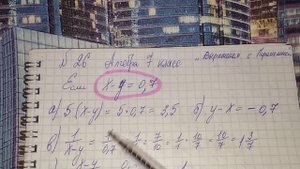 № 26 Алгебра 7 класс „Выражения с
Если x-y = 0,7
а) 5(x-y) = 5·0,7 = 3,5 б) y-x = -0,7
в) 1/x-y = 1/0,7 = 1: 7/10 = 1/1 · 10/7 = 10/7 = 1 3/7